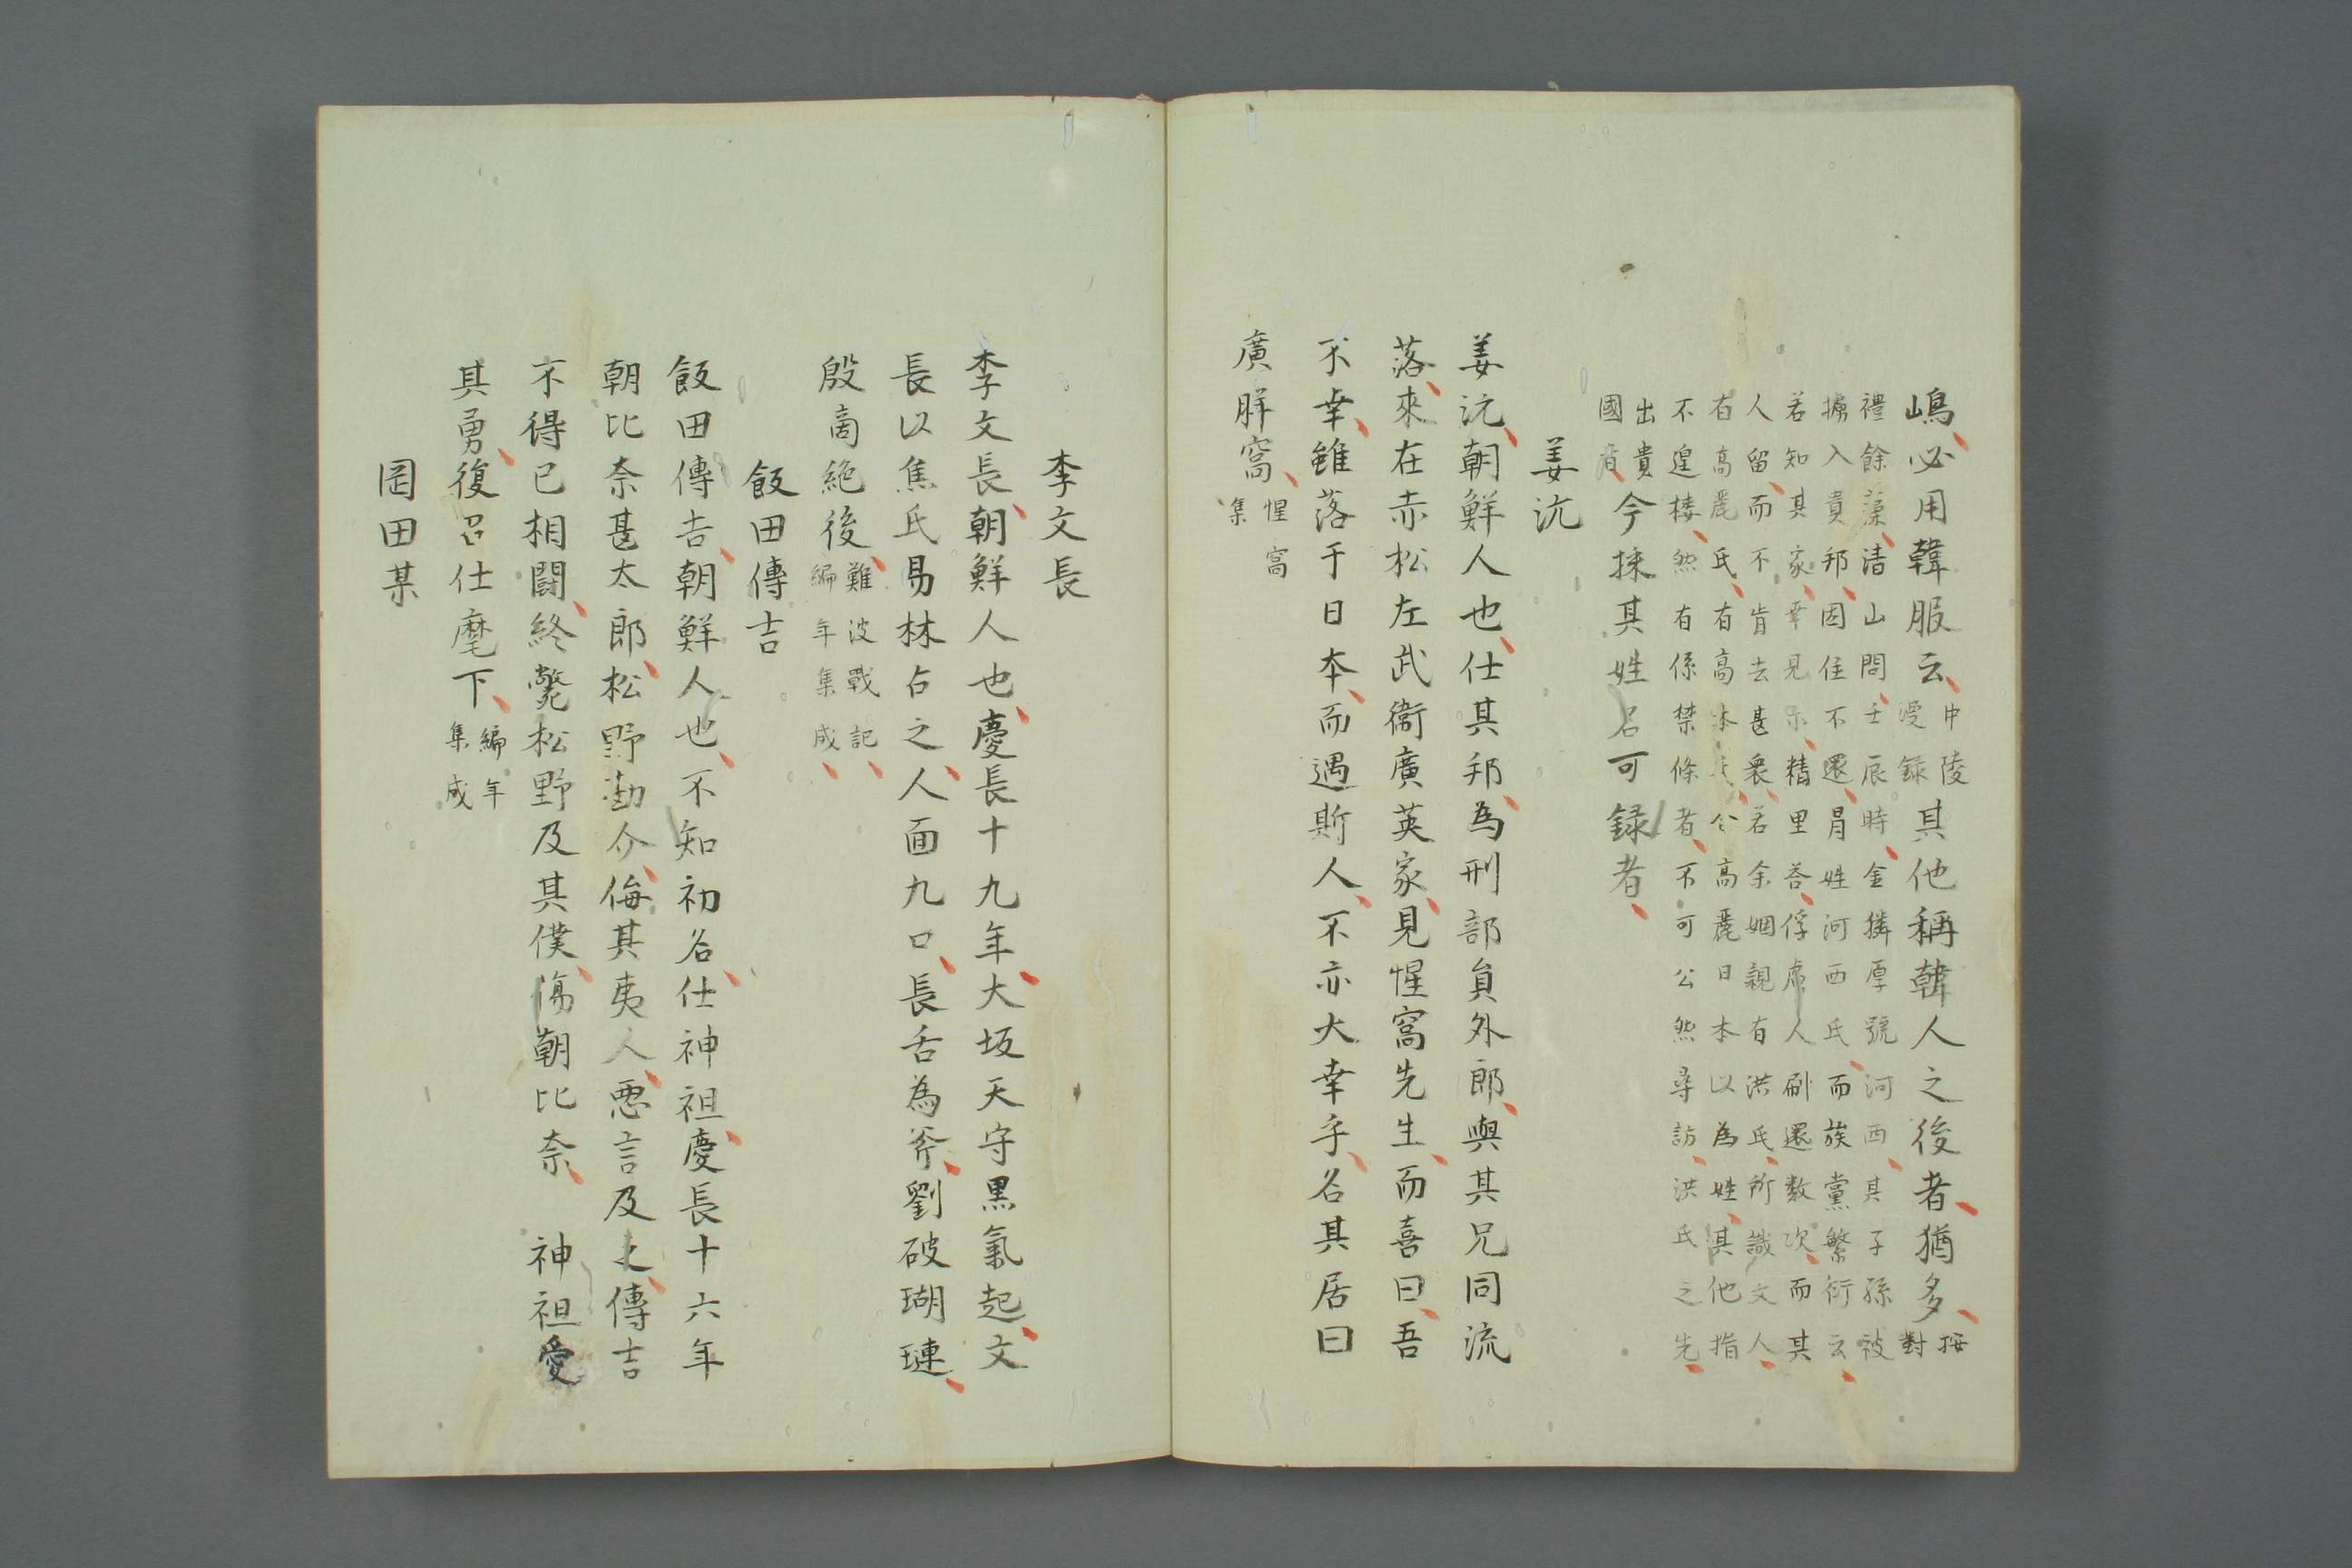 嶋、必用韓服云、中陵漫録其他稱韓人之後者、猶多、按對
禮餘藻、清山問、壬辰時、金獜厚號河西、其子孫被
擄入貴邦、因住不還、冐姓河西氏、而族黨繁衍云、
若知其家、幸見示、精里荅、俘虜人刷還数次、而其
人留、而不肯去甚衆、若余姻親有洪氏、所識文人、
有高麗氏、有高本氏、合高麗日本以為姓、其他指
不遑搂、然有係禁條者、不可公然尋訪、洪氏之先、
出貴國者、今採其姓名可録者、
姜沆
姜沆、朝鮮人也、仕其邦、為刑部員外郎、與其兄同流
落、來在赤松左武衞廣英家、見惺窩先生、而喜曰、吾
不幸、雖落于日本、而遇斯人、不亦大幸乎、名其居曰
廣胖窩、惺窩集
李文長
李文長、朝鮮人也、慶長十九年、大坂天守黒氣起、文
長以焦氏易林占之、人面九口、長舌為斧、劉破瑚璉、
殷商絶後、難波戰記、編年集成、
飯田傳吉
飯田傳吉、朝鮮人也、不知初名、仕神祖、慶長十六年
朝比奈甚太郎、松野勘介、侮其夷人、悪言及之、傳吉
不得已相闘、終斃松野及其僕、傷朝比奈、 神祖愛
其勇、復召仕麾下、編年集成
岡田某